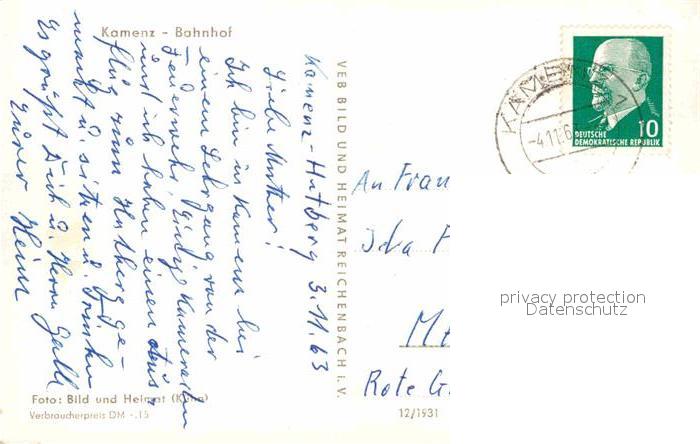 Kamenz - Bahnhof
Kamenz-Hutberg 3.11.63
Liebe Mutter!
Ich bin in Kamenz bei
einem Lehrgang von der
Feuerwehr. Einige Kameraden
und ich haben einen
flug zum Hutberg ge-
macht u. sitzen u. trinken
Es grüßt Dich u. Herrn
Euer Heinz
Foto: Bild und Heimat
Verbraucherpreis DM -.15
VEB BILD UND HEIMAT REICHENBACH i. V.
12/1931
KAMENZ
-4.11.63
10
DEUTSCHE
DEMOKRATISCHE REPUBLIK
An Frau
Ida
Rote
privacy protection
Datenschutz